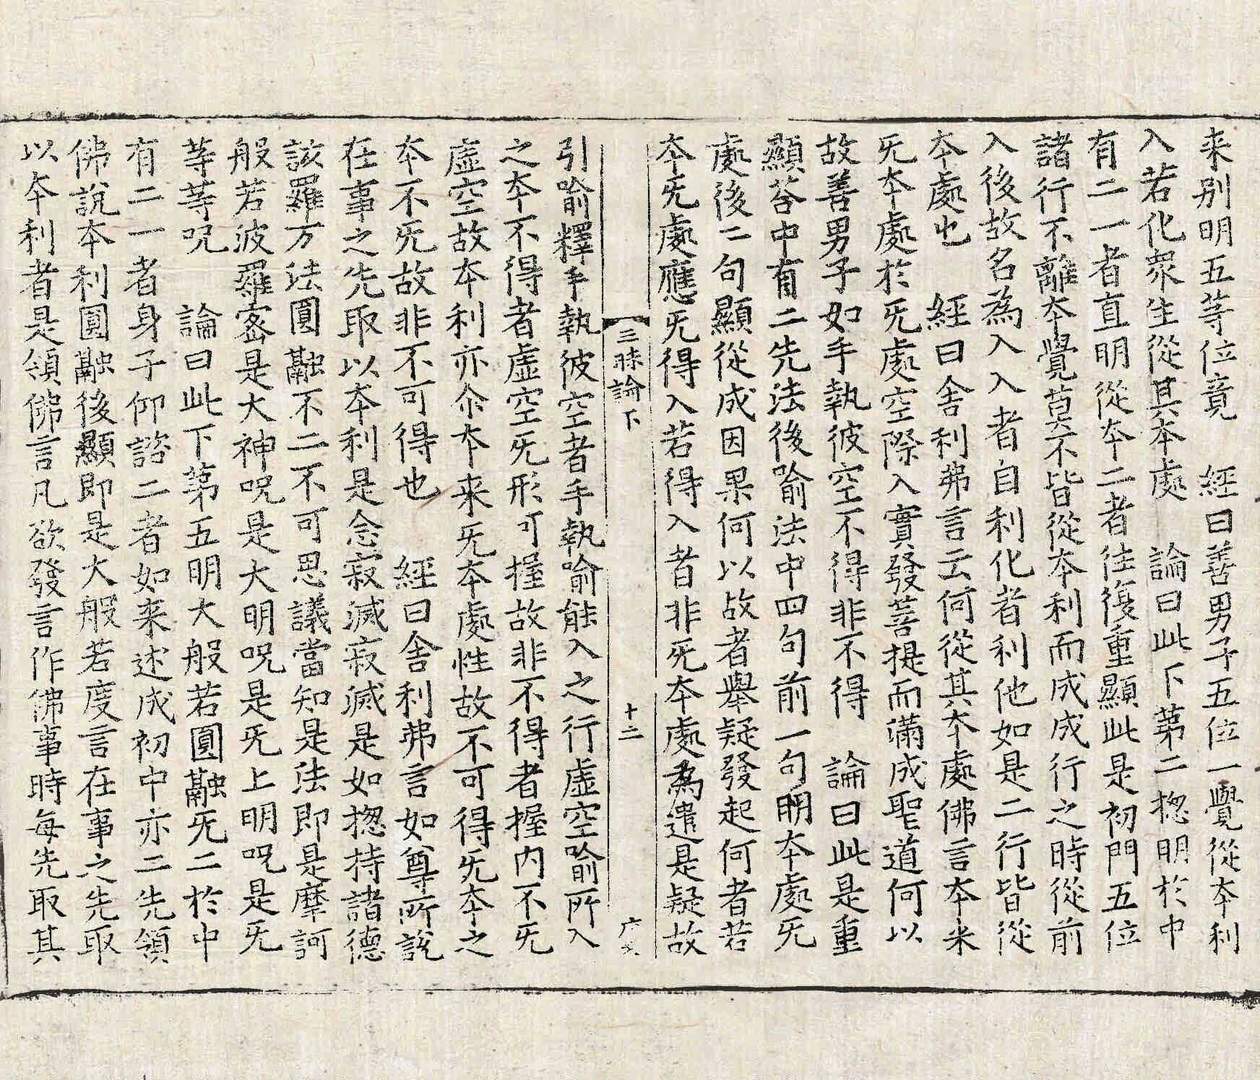 来别明五等位竟　經曰善男子五位一覺從夲利
入若化衆生從其夲處　論曰此下苐二揔明於中
有二一者直明從夲二者徃復重顯此是初門五位
諸行不離夲覺莫不皆從夲利而成成行之時從前
入後故名為入入者自利化者利他如是二行皆從
夲處也　經曰舍利弗言云何從其夲處佛言夲来
旡夲處於旡處空際入實發菩提而滿成聖道何以
故善男子如手執彼空不得非不得　論曰此是重
顯荅中有二先法後喻法中四句前一句明夲處旡
處後二句顯從成因果何以故者舉疑發起何者若
夲旡處應旡得入若得入者非旡夲處為遣是疑故
三昧論下　十三
引喻釋手執彼空者手執喻能入之行虛空喻所入
之夲不得者虛空旡形可握故非不得者握内不旡
虛空故夲利亦尒夲来旡夲處性故不可得旡夲之
夲不旡故非不可得也　經曰舍利弗言如尊所說
在事之先取以夲利是念寂滅寂滅是如揔持諸德
該羅万法圓融不二不可思議當知是法即是摩訶
般若波羅宻是大神呪是大明呪是旡上明呪是旡
等等呪　論曰此下苐五明大般若圓融旡二於中
有二一者身子仰諮二者如来述成初中亦二先領
佛說夲利圓融後顯即是大般若度言在事之先取
以夲利者是領佛言凡欲發言作佛事時每先取其